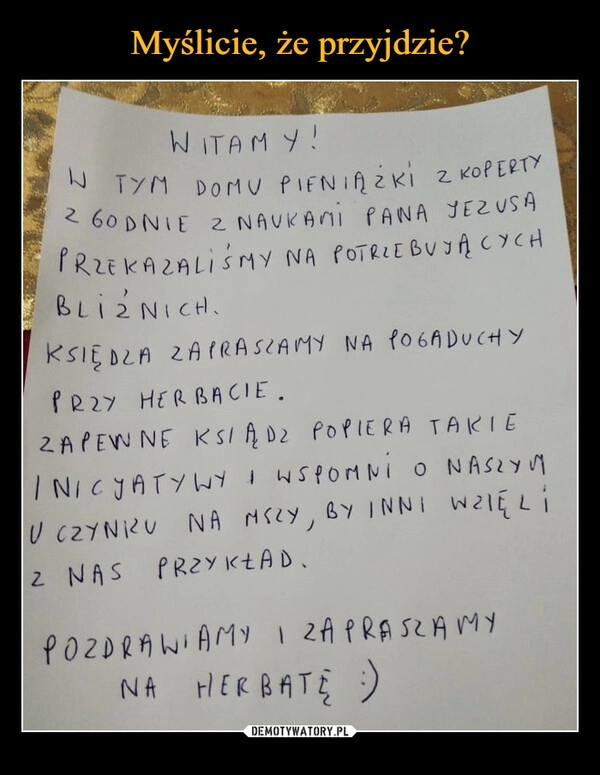 Myślicie, że przyjdzie?
WITAMY!
W TYM DOMU PIENIĄŻKI Z KOPERTY
ZGODNIE Z NAUKAMI PANA JEZUSA
PRZEKAZALIŚMY NA POTRZEBUJĄCYCH
BLIŹNICH.
KSIĘDZA ZAPRASZAMY NA POGADUCHY
PRZY HERBACIE.
ZAPEWNE KSIĄDZ POPIERA TAKIE
INICJATYWY I WSPOMNI O NASZYM
UCZYNKU NA MSZY, BY INNI WZIĘLI
Z NAS PRZYKŁAD.
POZDRAWIAMY I ZAPRASZAMY
NA HERBATĘ :)
DEMOTYWATORY.PL